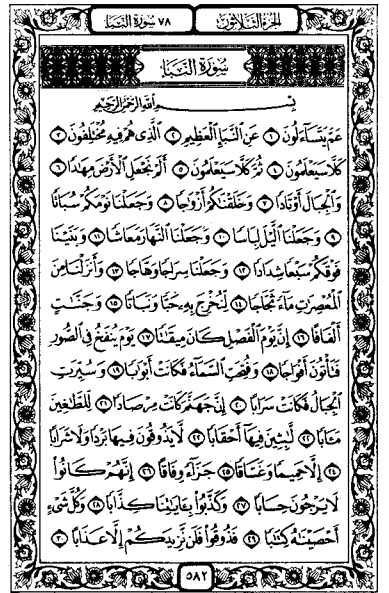 ٧٨ سورة النبإ الجزء الثلاثون
سُورَةُ النَّبَإِ
بِسْمِ اللَّهِ الرَّحْمَٰنِ الرَّحِيمِ
عَمَّ يَتَسَاءَلُونَ ١ عَنِ النَّبَإِ الْعَظِيمِ ٢ الَّذِي هُمْ فِيهِ مُخْتَلِفُونَ ٣
كَلَّا سَيَعْلَمُونَ ٤ ثُمَّ كَلَّا سَيَعْلَمُونَ ٥ أَلَمْ نَجْعَلِ الْأَرْضَ مِهَٰدًا ٦
وَالْجِبَالَ أَوْتَادًا ٧ وَخَلَقْنَٰكُمْ أَزْوَٰجًا ٨ وَجَعَلْنَا نَوْمَكُمْ سُبَاتًا
٩ وَجَعَلْنَا اللَّيْلَ لِبَاسًا ١٠ وَجَعَلْنَا النَّهَارَ مَعَاشًا ١١ وَبَنَيْنَا
فَوْقَكُمْ سَبْعًا شِدَادًا ١٢ وَجَعَلْنَا سِرَاجًا وَهَّاجًا ١٣ وَأَنزَلْنَا مِنَ
الْمُعْصِرَٰتِ مَاءً ثَجَّاجًا ١٤ لِّنُخْرِجَ بِهِ حَبًّا وَنَبَاتًا ١٥ وَجَنَّٰتٍ
أَلْفَافًا ١٦ إِنَّ يَوْمَ الْفَصْلِ كَانَ مِيقَٰتًا ١٧ يَوْمَ يُنفَخُ فِي الصُّورِ
فَتَأْتُونَ أَفْوَاجًا ١٨ وَفُتِحَتِ السَّمَاءُ فَكَانَتْ أَبْوَٰبًا ١٩ وَسُيِّرَتِ
الْجِبَالُ فَكَانَتْ سَرَابًا ٢٠ إِنَّ جَهَنَّمَ كَانَتْ مِرْصَادًا ٢١ لِّلطَّٰغِينَ
مَـَٔابًا ٢٢ لَّٰبِثِينَ فِيهَا أَحْقَابًا ٢٣ لَّا يَذُوقُونَ فِيهَا بَرْدًا وَلَا شَرَابًا
٢٤ إِلَّا حَمِيمًا وَغَسَّاقًا ٢٥ جَزَاءً وِفَاقًا ٢٦ إِنَّهُمْ كَانُوا
لَا يَرْجُونَ حِسَابًا ٢٧ وَكَذَّبُوا بِـَٔايَٰتِنَا كِذَّابًا ٢٨ وَكُلَّ شَيْءٍ
أَحْصَيْنَٰهُ كِتَٰبًا ٢٩ فَذُوقُوا فَلَن نَّزِيدَكُمْ إِلَّا عَذَابًا ٣٠
٥٨٢